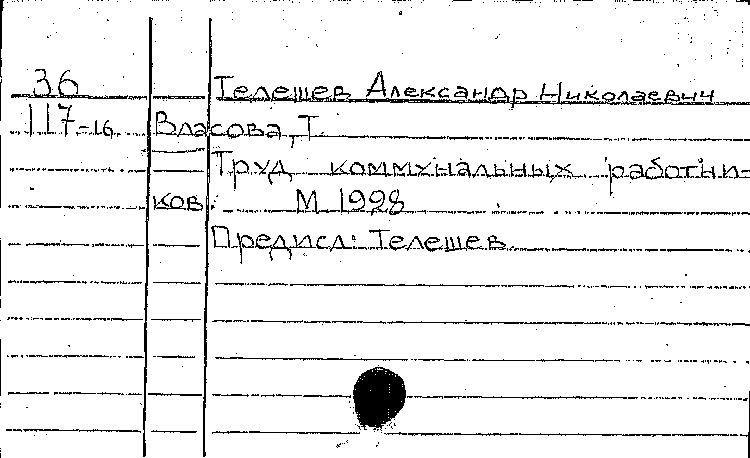 36 Телешев Александр Николаевич
117-16 Власова, Т.
Труд коммунальных работни-
ков. М 1928
Предисл: Телешев.